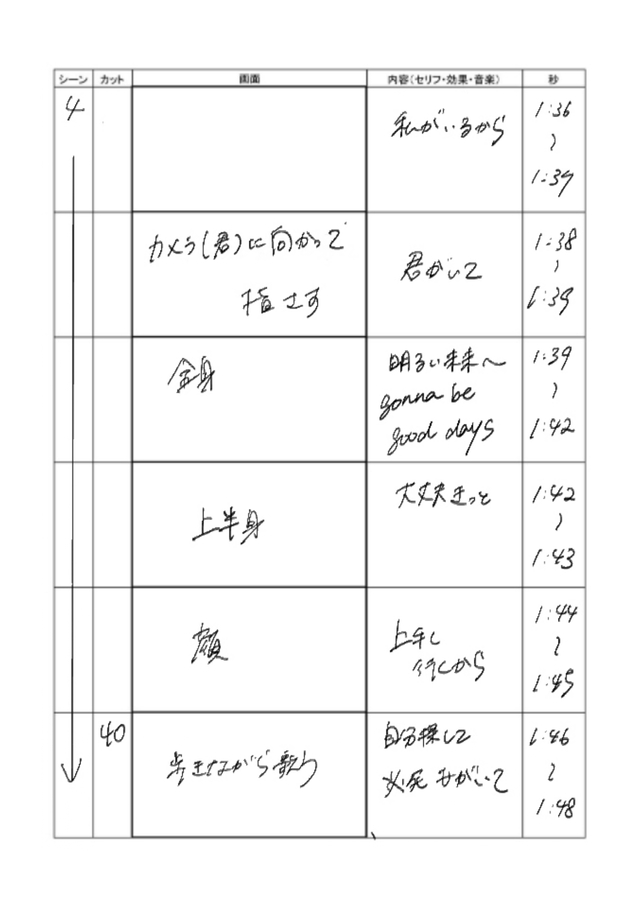 シーン カット 画面 内容(セリフ・効果・音楽) 秒
4
私がいるから
1:36
〜
1:39
カメラ(君)に向かって
指さす
君がいて
1:38
〜
1:39
全身
明るい未来へ
gonna be
good days
1:39
〜
1:42
上半身
大丈夫きっと
1:42
〜
1:43
顔
上手く
行くから
1:44
〜
1:45
40
歩きながら歌う
自分探して
必死もがいて
1:46
〜
1:48